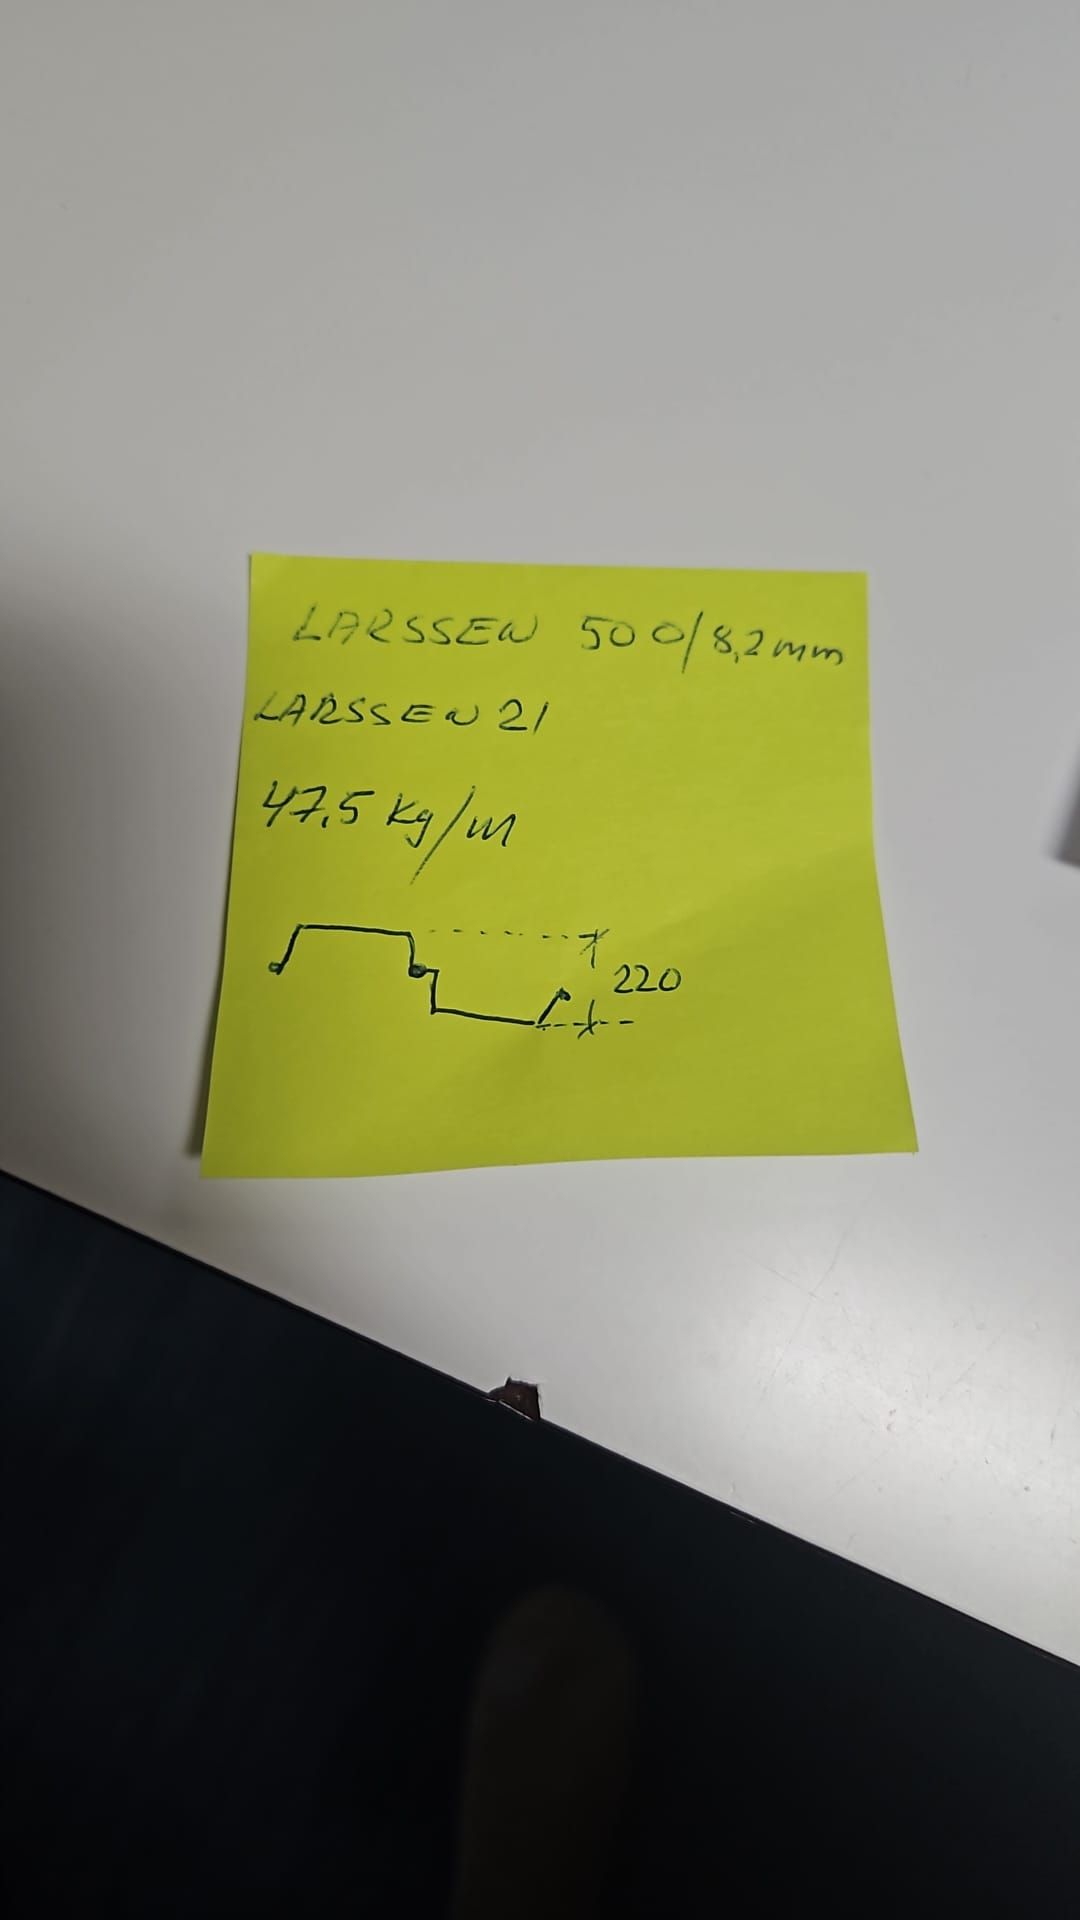 LARSSEN 500/8,2mm
LARSSEN 21
47,5 kg/m
220